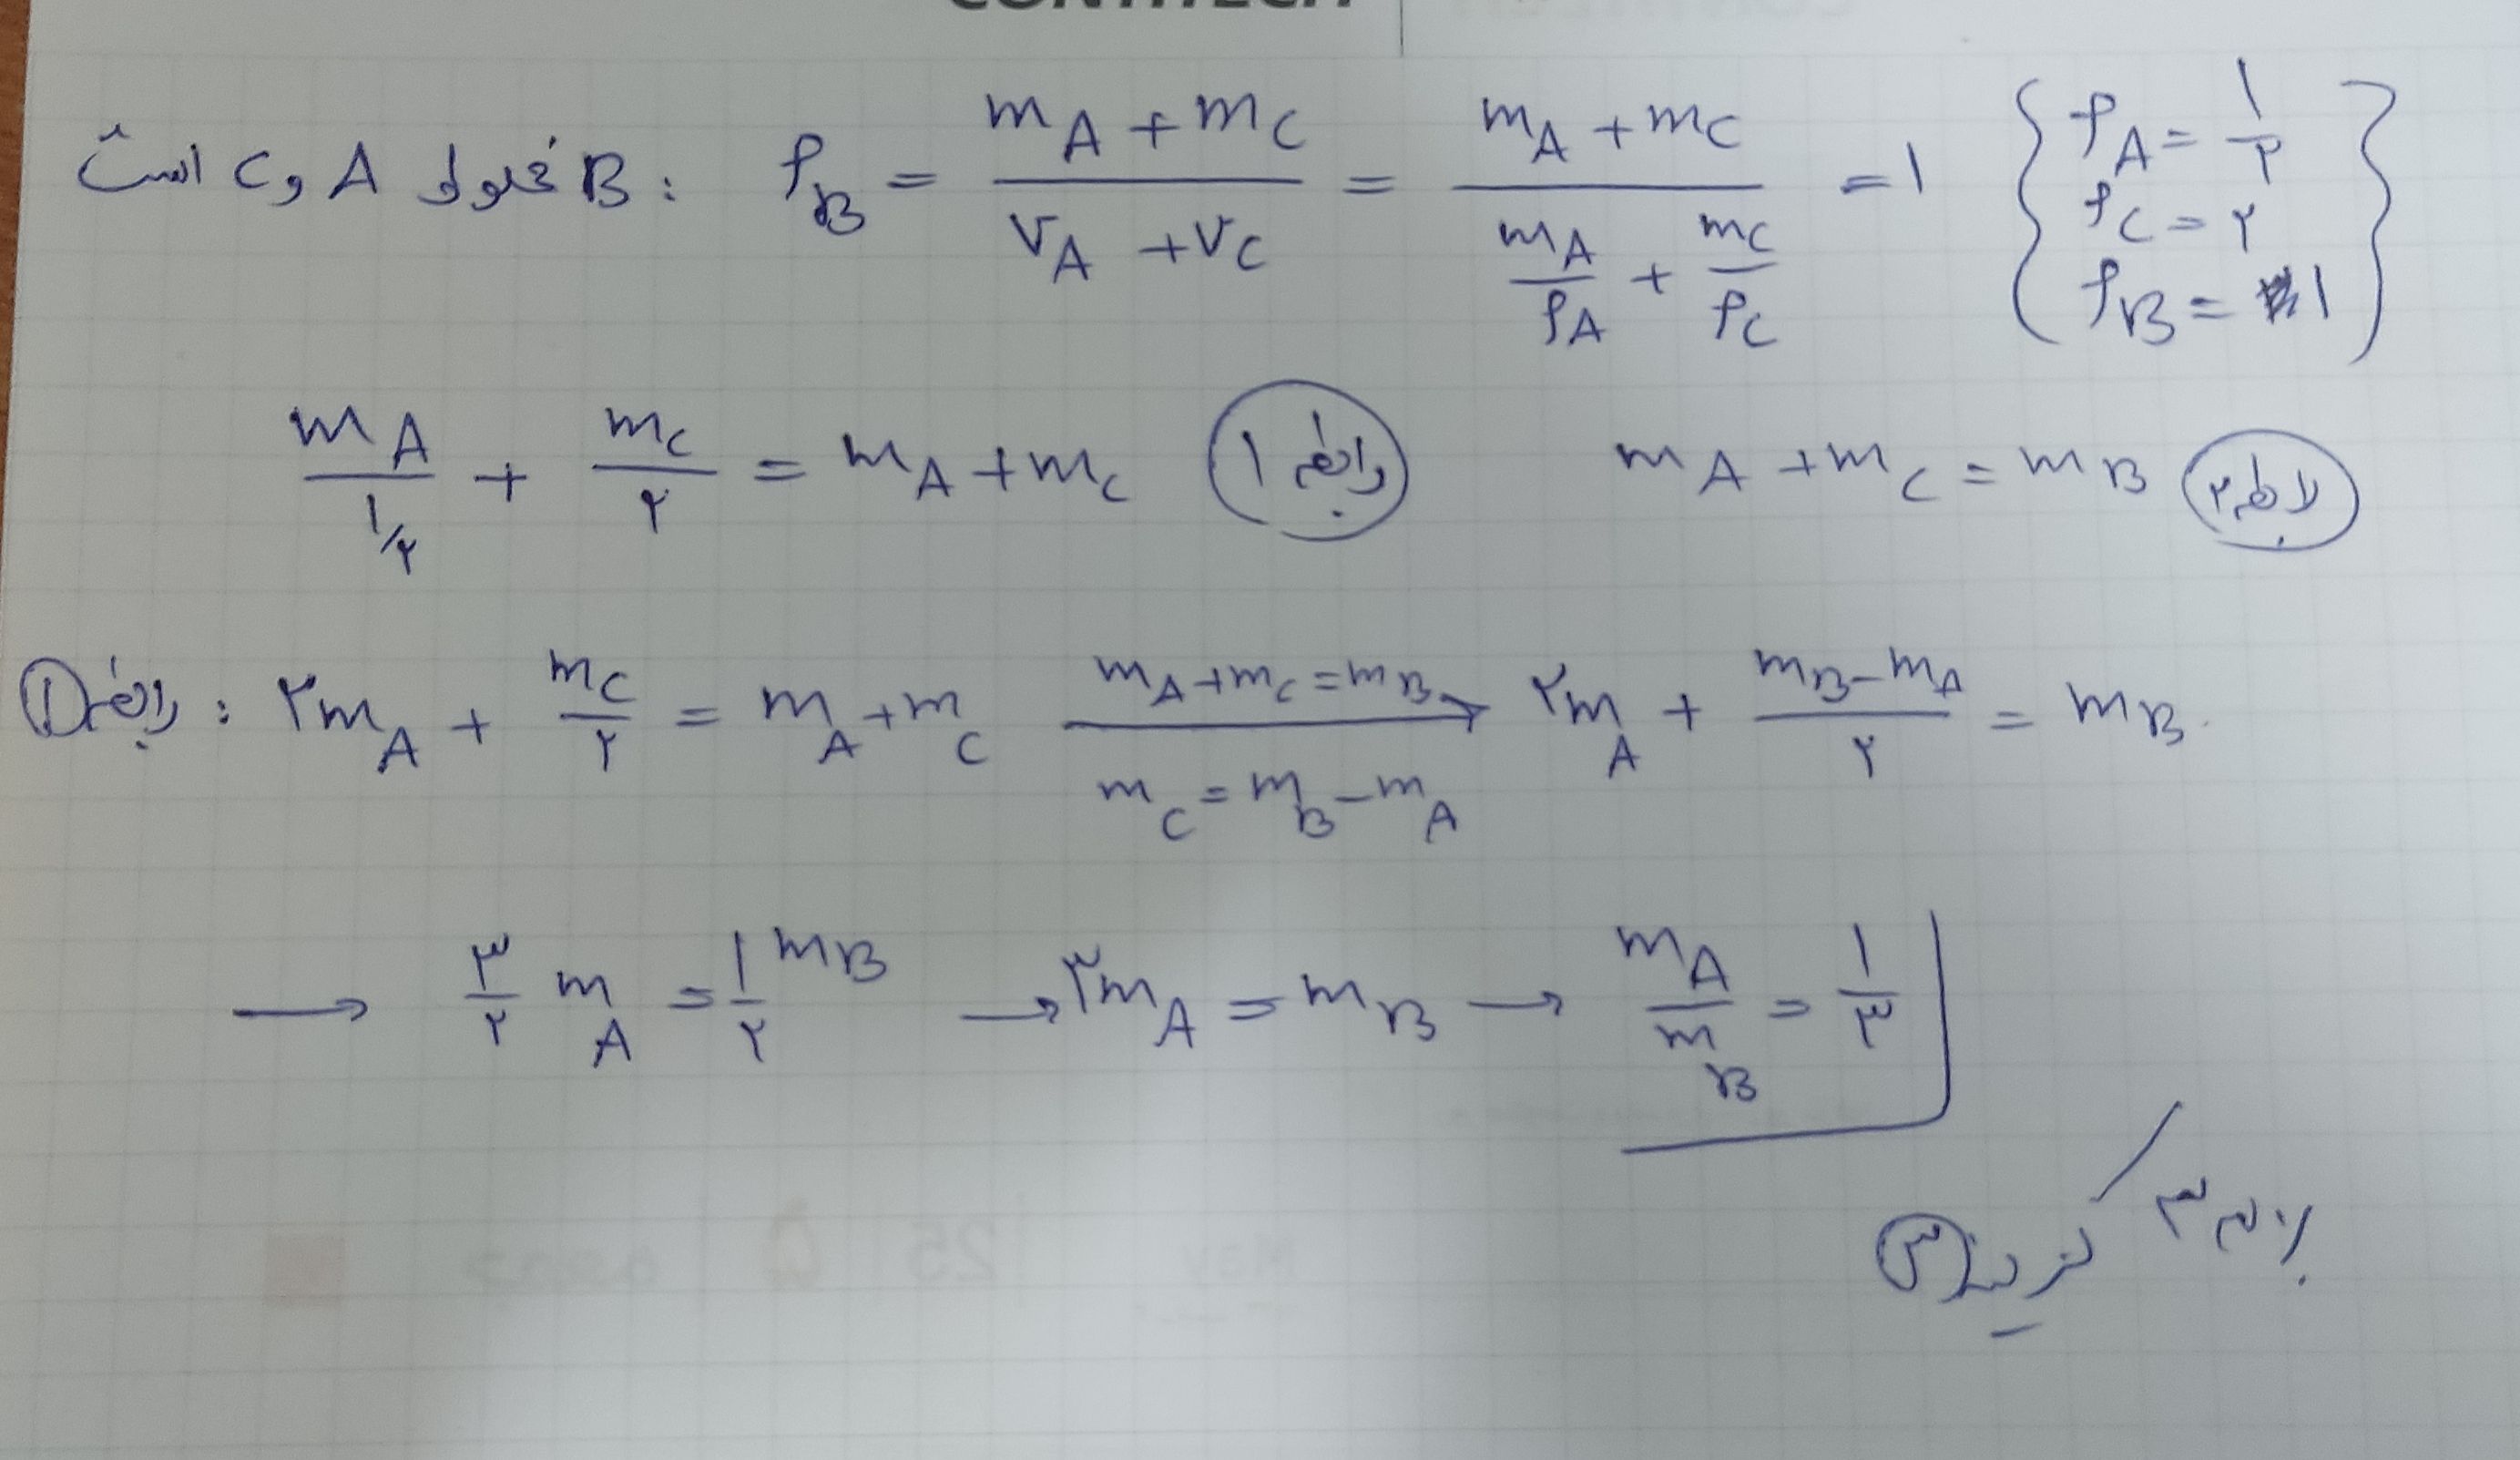 CONTITECH
B مخلوط A و C است : ρB = (mA + mC)/(VA + VC) = (mA + mC)/(mA/ρA + mC/ρC) = ۱ { ρA = ۱/۲ ρC = ۲ ρB = ۱ }
mA/(۱/۲) + mC/۲ = mA + mC رابطه ۱ mA + mC = mB رابطه ۲
رابطه ۱ : ۲mA + mC/۲ = mA + mC mA + mC = mB → mC = mB − mA ۲mA + (mB − mA)/۲ = mB
→ ۳/۲ mA = ۱/۲ mB → ۳mA = mB → mA/mB = ۱/۳
٪۳۳
گزینه ۳